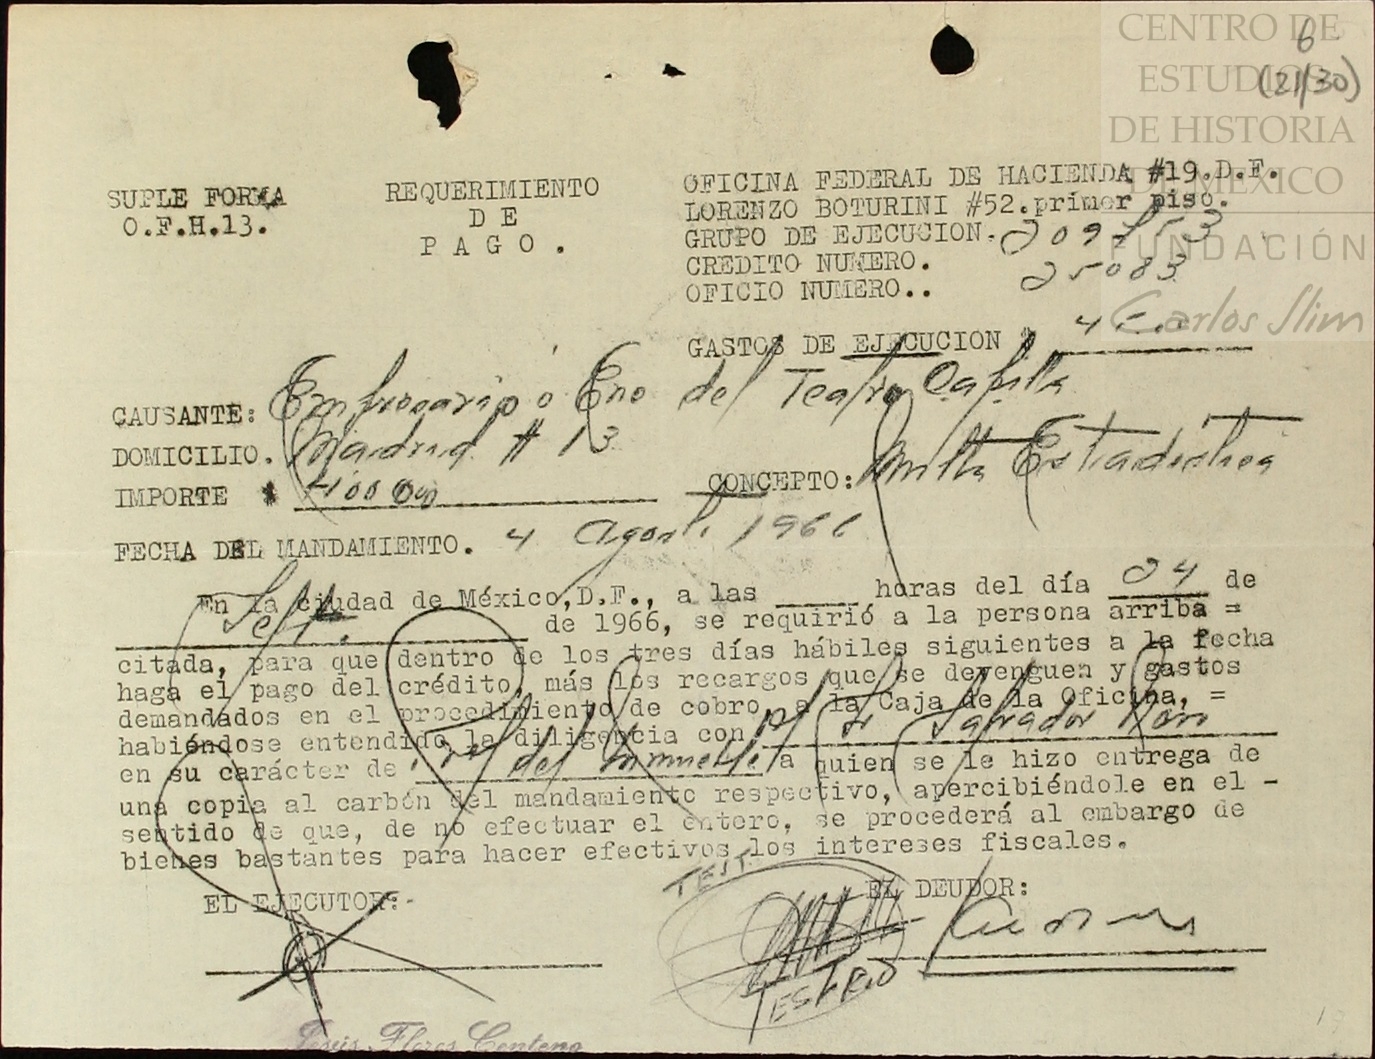 CENTRO DE
ESTUDIOS
DE HISTORIA
DE MÉXICO
FUNDACIÓN
Carlos Slim
6
(21/30)
SUPLE FORMA
O.F.H.13.
REQUERIMIENTO
DE
PAGO.
OFICINA FEDERAL DE HACIENDA #19.D.F.
LORENZO BOTURINI #52.primer piso.
GRUPO DE EJECUCION.
CREDITO NUMERO. 25083
OFICIO NUMERO..
GASTOS DE EJECUCION $
CAUSANTE: Empresario o Enc del Teatro
DOMICILIO. Madrid # 13
IMPORTE $ 400 00
CONCEPTO: Multa Estadistica
FECHA DEL MANDAMIENTO. 4 Agosto 1966
En la ciudad de México,D.F., a las ____ horas del día 24 de
Sept. de 1966, se requirió a la persona arriba =
citada, para que dentro de los tres días hábiles siguientes a la fecha
haga el pago del crédito, más los recargos que se devenguen y gastos
demandados en el procedimiento de cobro, a la Caja de la Oficina, =
habiéndose entendido la diligencia con el Sr Salvador
en su carácter de del inmueble a quien se le hizo entrega de
una copia al carbón del mandamiento respectivo, apercibiéndole en el -
sentido de que, de no efectuar el entero, se procederá al embargo de
bienes bastantes para hacer efectivos los intereses fiscales.
TEST.
EL EJECUTOR:-
EL DEUDOR:
TESTGO
Jesús Flores Centeno